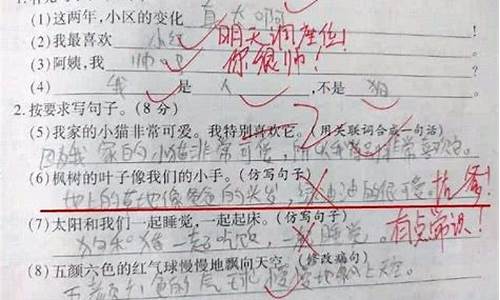 (1)这两年,小区的变化 真大啊
(2)我最喜欢 小红 明天调座位!
(3)阿姨,我 帅吧 你很帅!
(4) 我 是 人 ,不是 狗
2.按要求写句子。(8 分)
(5)我家的小猫非常可爱。我特别喜欢它。(用关联词合成一句话)
因为我家的小猫非常可爱,所以我 非常喜欢它。
(6)枫树的叶子像我们的小手。(仿写句子)
地上的草地像爸爸的头发,绿油油的很可爱。
(7)太阳和我们一起睡觉,一起起床。(仿写句子) 有点常识!
狗和猪一起吃饭,一起睡觉。
(8)五颜六色的红气球慢慢地飘向天空。(修改病句)
五颜六色的气球慢慢地飘上天空。